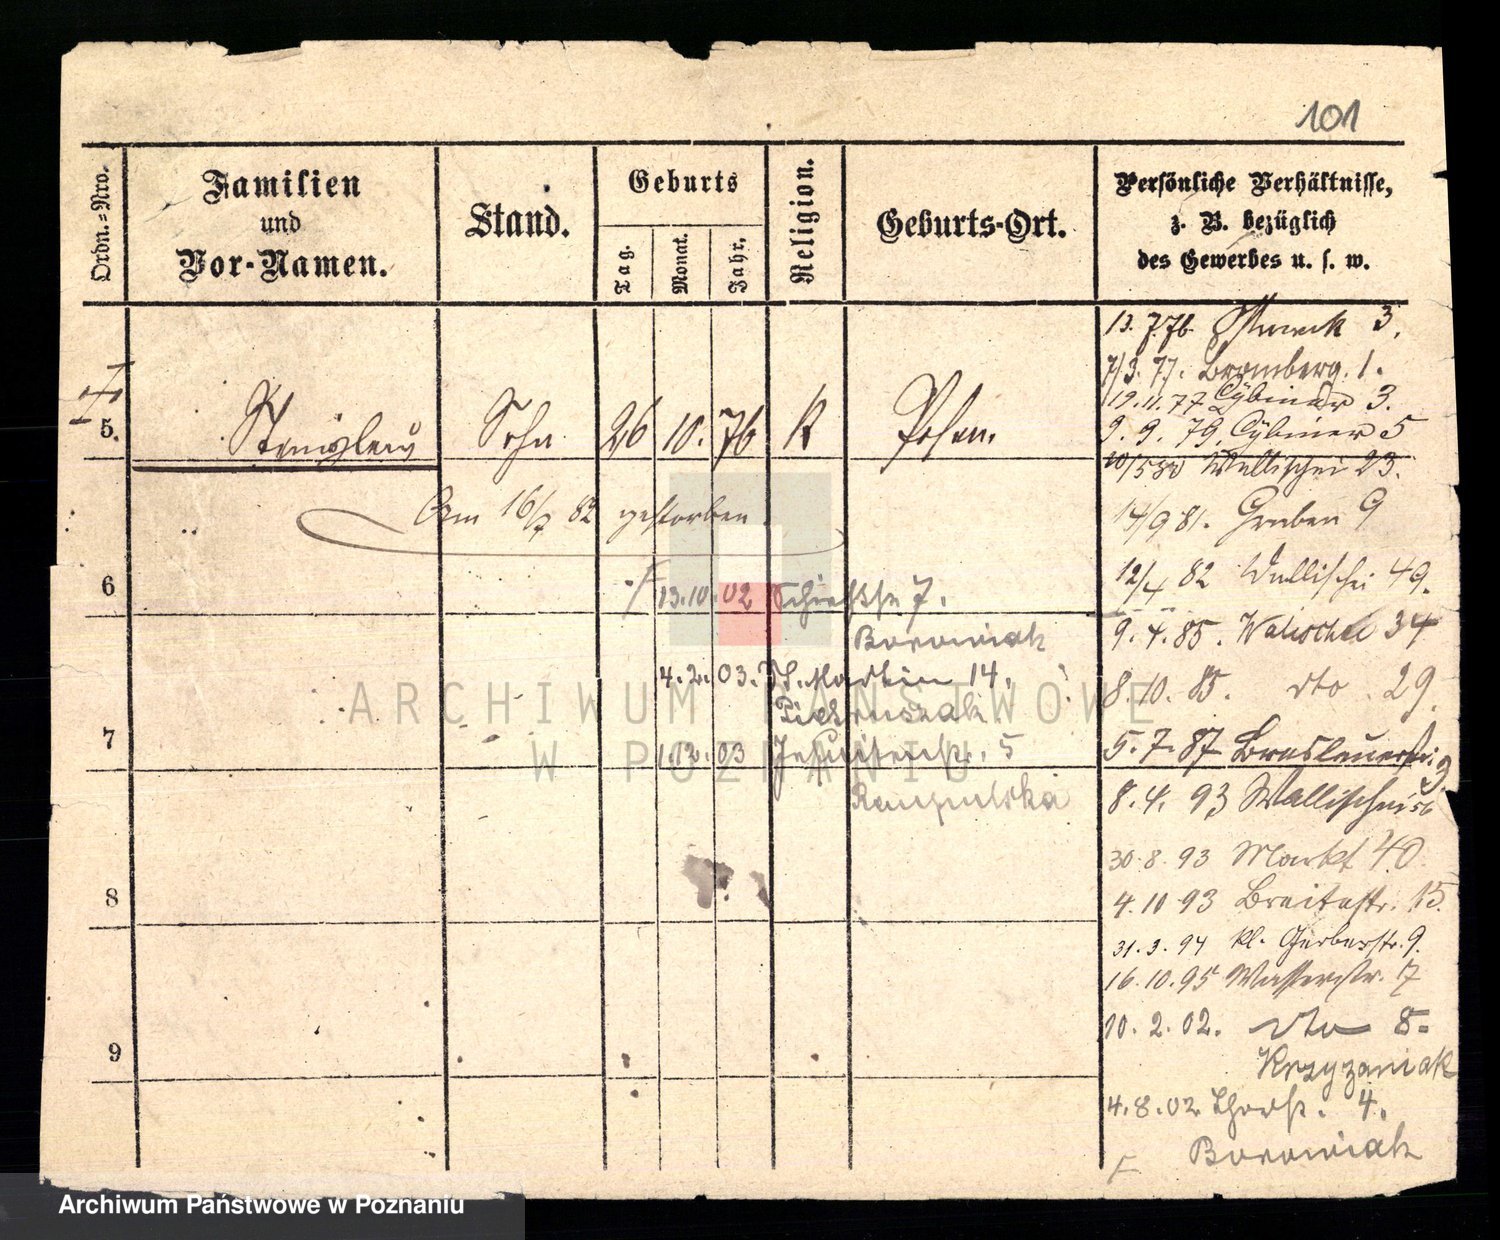 101
Ordn.=Nro.
Familien
und
Vor-Namen.
Stand.
Geburts
Tag.
Monat.
Jahr.
Religion.
Geburts-Ort.
Persönliche Verhältnisse,
z. B. bezüglich
des Gewerbes u. s. w.
13. 7. 76. 3.
7/3. 77. Bromberg. 1.
19. 11. 77 Cybiner 3.
5. Stanislaus Sohn 26 10. 76 k Posen.
9. 9. 79. Cybiner 5
10/5 80 Wallischei 23.
Am 16/7 82 gestorben
14/9 81. Graben 9
12/4 82 Wallischei 49.
6
13. 10. 02 7.
9. 4. 85. Walischei 34
Borowiak
4. 2. 03. St. Martin 14.
8. 10. 85. dto 29.
Pietruszak.
7
1.12.03 Jesuitenstr. 5
5. 7. 87 Breslauerstr. 9
8. 4. 93 Wallischei
30. 8. 93 Markt 40
8
4. 10 93 Breitestr. 15.
31. 3. 94 kl. Gerberstr. 9.
16. 10. 95 Wasserstr. 17
10. 2. 02. dto 8.
9
Krzyzaniak
4. 8. 02 Thorstr. 4.
Borowiak
ARCHIWUM PAŃSTWOWE
W POZNANIU
Archiwum Państwowe w Poznaniu